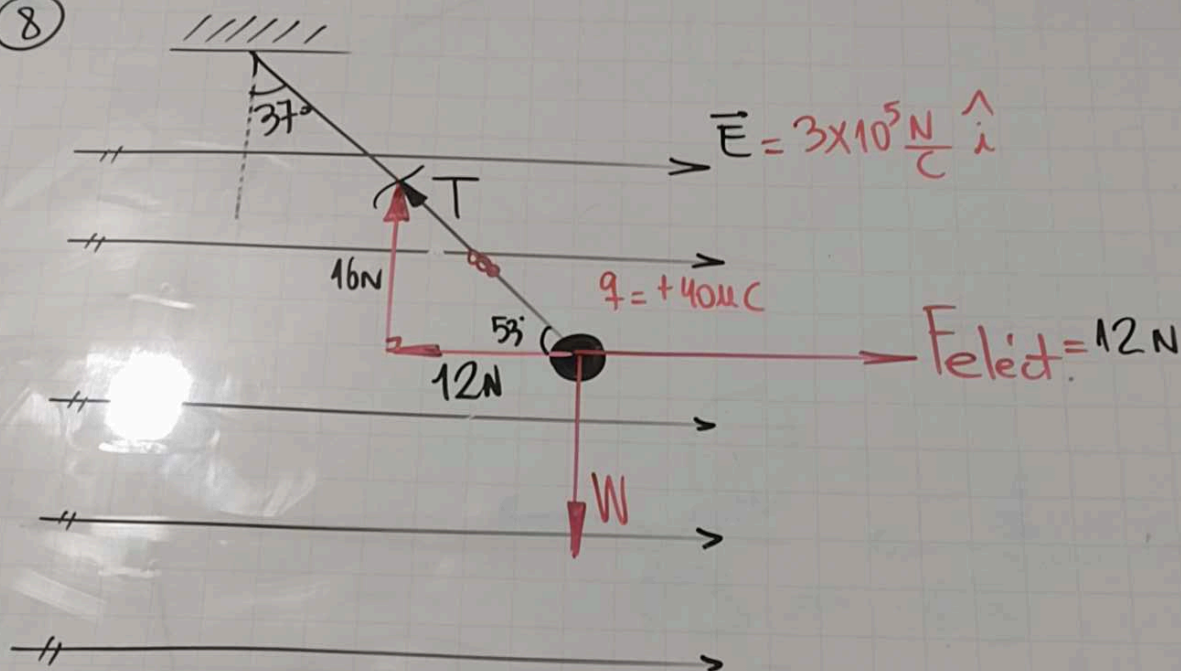 8
37°
E = 3x10⁵ N/C î
T
16N
q = +40μC
53°
12N
Feléct. = 12N
W